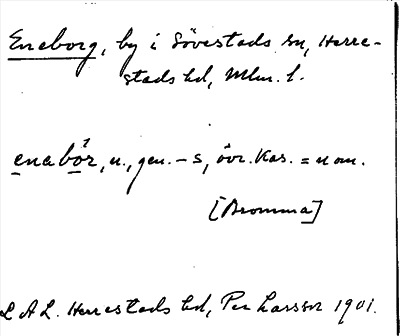 Eneborg, by i Sövestads sn, Herre-
stads hd, Mlm. l.
enabór, n., gen. -s, övr. kas. = nom.
[Bromma]
L A L. Herrestads hd, Per Larsson 1901.